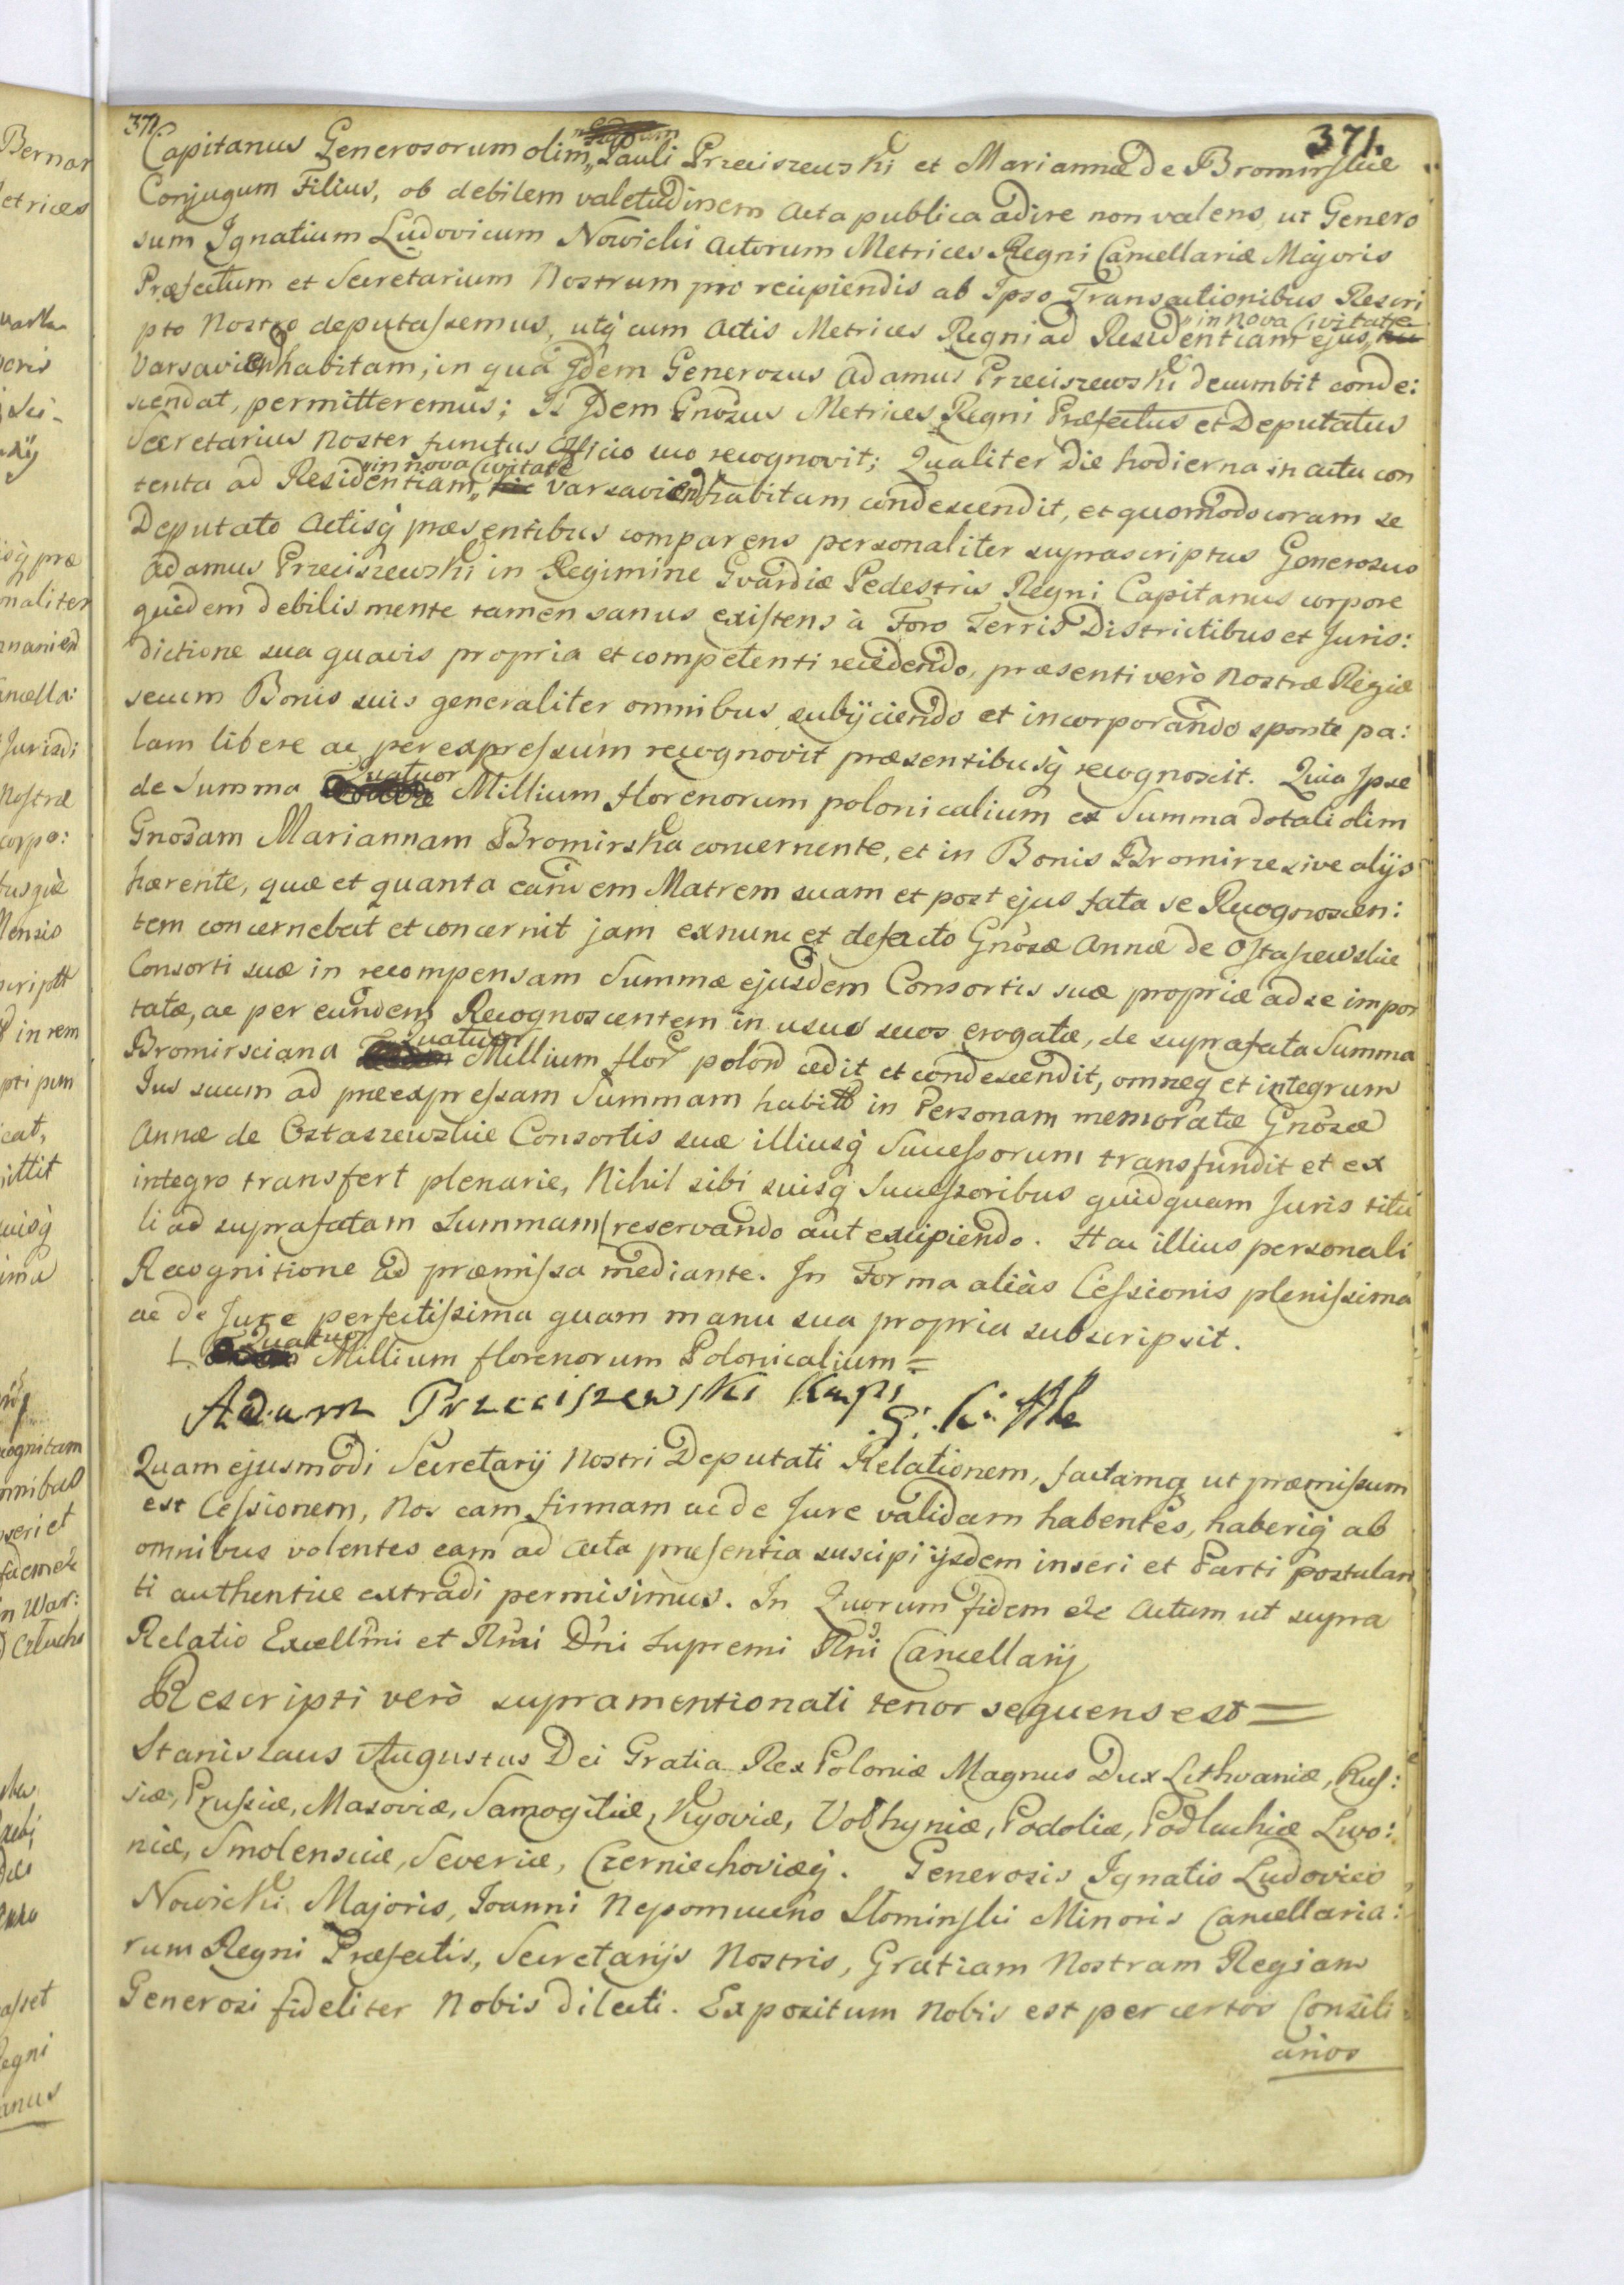 371.
371.
Capitanus Generosorum olim Pauli Przeciszewski et Mariannæ de Bromirskie
Conjugum Filius, ob debilem valetudinem Acta publica adire non valens, ut Genero
sum Ignatium Ludovicum Nowicki Actorum Metrices Regni Cancellariæ Majoris
Præfectum et Secretarium Nostrum pro recipiendis ab Ipso Transactionibus Rescri
pto Nostro deputassemus, utq̃ cum Actis Metrices Regni ad Residentiam ejus, in Nova Civitate
Varsavien habitam, in qua Jdem Generosus Adamus Przeciszewski decumbit conde:
scendat, permitteremus; Is Jdem Gnosus Metrices Regni Præfectus et Deputatus
Secretarius Noster functus Officio suo recognovit; Qualiter Die hodierna in actu con
tenta ad Residentiam, in nova Civitate hic Varsavien habitam condescendit, et quomodo coram se
Deputato Actisq̃ præsentibus comparens personaliter suprascriptus Generosus
Adamus Przeciszewski in Regimine Gvardiæ Pedestris Regni Capitanus corpore
quidem debilis mente tamen sanus existens à Foro Terris Districtibus et Juris:
dictione sua quavis propria et competenti recedendo, præsenti verò Nostræ Regiæ
secum Bonis suis generaliter omnibus subijciendo et incorporando sponte pa:
lam libere ac per expressum recognovit præsentibusq̃ recognoscit. Quia Ipse
de Summa Quatuor Millium florenorum polonicalium ex Summa dotali olim
Gnosam Mariannam Bromirska concernente, et in Bonis Bromirze sive alijs
hærente, quæ et quanta eandem Matrem suam et post ejus fata se Recognoscen:
tem concernebat et concernit jam exnunc et defacto Gnosæ Annæ de Ostaszewskie
Consorti suæ in recompensam Summæ ejusdem Consortis suæ propriæ ad se impor
tatæ, ac per eundem Recognoscentem in usus suos erogatæ, de suprafata Summa
Bromirsciana Quatuor Millium flor polon cedit et condescendit, omneq̃ et integrum
Jus suum ad præexpressam Summam habitū in Personam memoratæ Gnosæ
Annæ de Ostaszewskie Consortis suæ illiusq̃ Successorum transfundit et ex
integro transfert plenarie, Nihil sibi suisq̃ Successoribus quidquam Juris titu
li ad suprafatam Summam reservando aut excipiendo. Hac illius personali
Recognitione ad præmissa mediante. In Forma aliàs Cessionis plenissima
ac de Jure perfectissima quam manu sua propria subscripsit.
Quatuor Millium florenorum Polonicalium =
Adam Przeciszewski Kapi
Quam ejusmodi Secretarij Nostri Deputati Relationem, factamq̃ ut præmissum
est Cessionem, Nos eam firmam ac de Jure validam habentes, haberiq̃ ab
omnibus volentes eam ad Acta præsentia suscipi ijsdem inseri et Parti postulan
ti authentice extradi permisimus. In Quorum fidem etc Actum ut supra
Relatio Excellm̃i et Rm̃i Dn̄i Supremi Rn̄i Cancellarij
Rescripti verò supramentionati tenor sequens est =
Stanislaus Augustus Dei Gratia Rex Poloniæ Magnus Dux Lithvaniæ, Rus:
siæ, Prussiæ, Masoviæ, Samogitiæ, Kijoviæ, Volhyniæ, Podoliæ, Podlachiæ Livo:
niæ, Smolensciæ, Severiæ, Czerniechoviæq̃. Generosis Ignatio Ludovico
Nowicki Majoris, Joanni Nepomuceno Słominski Minoris Cancellaria:
rum Regni Præfectis, Secretarijs Nostris, Gratiam Nostram Regiam
Generosi fideliter Nobis dilecti. Expositum Nobis est per certos Consili
arios